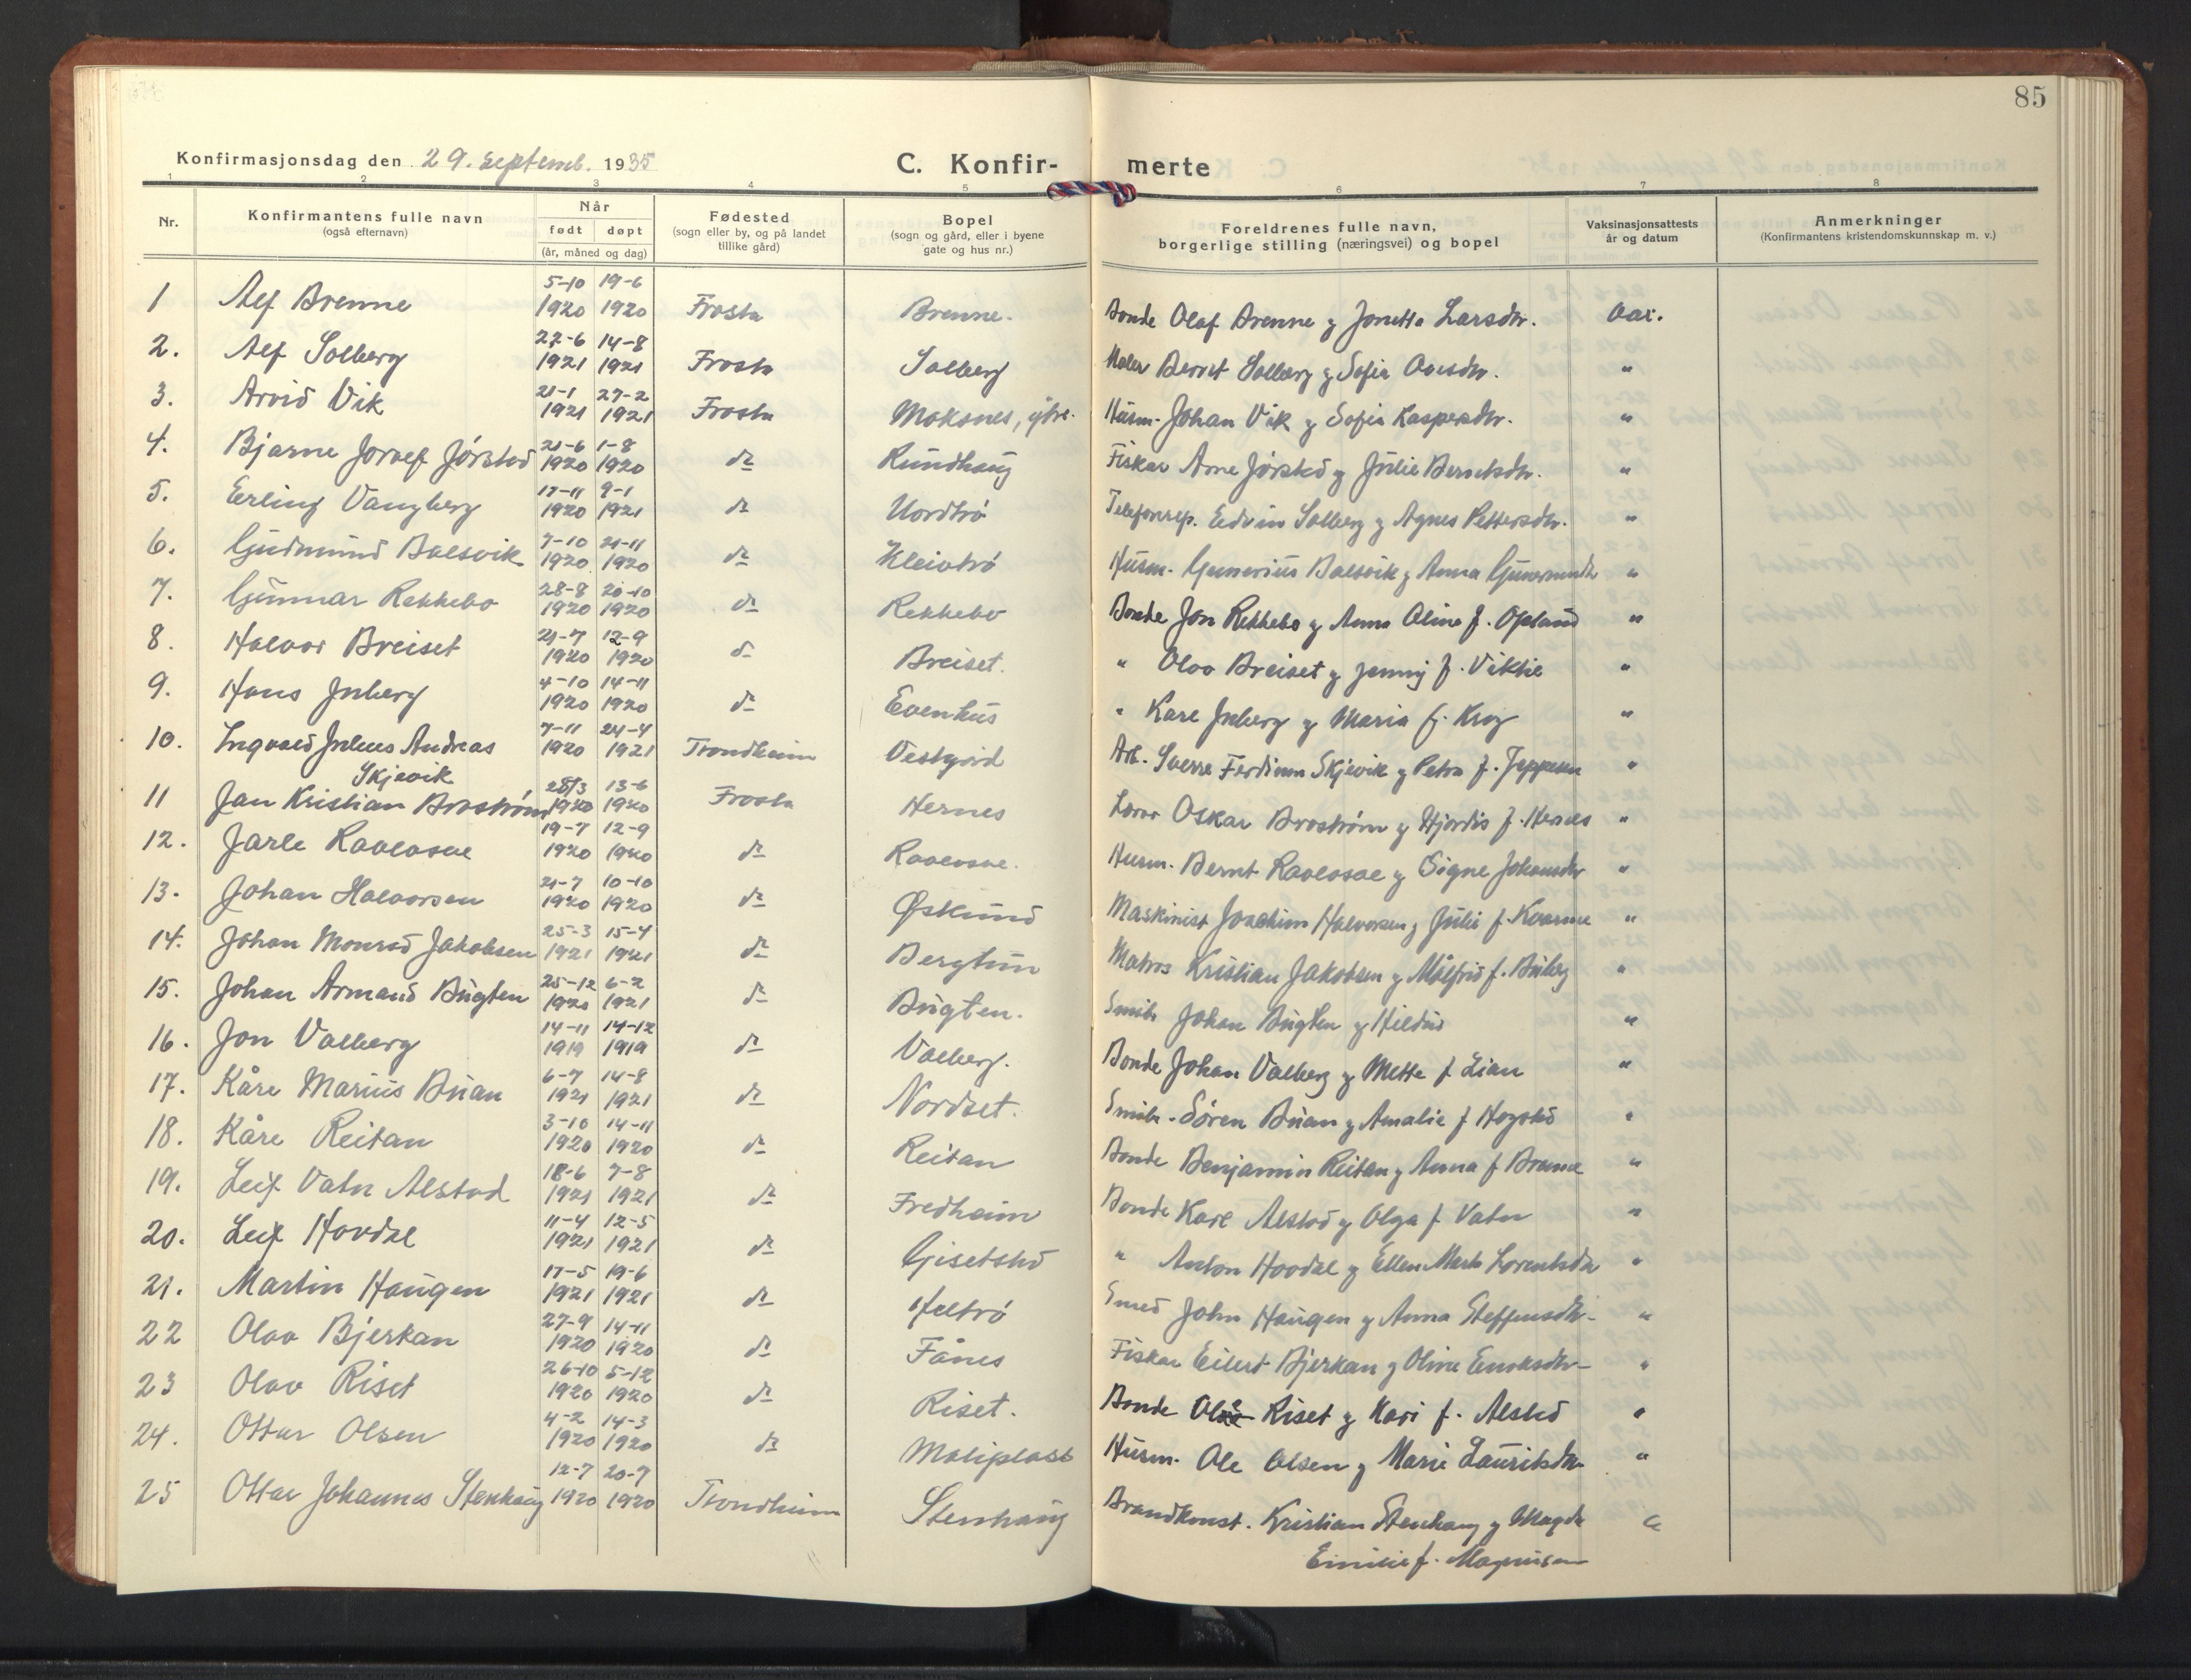 85
Konfirmasjonsdag den 29. septemb. 1935
C. Konfir- merte
1 2 3 4 5 6 7 8
Nr.
Konfirmantens fulle navn
(også efternavn)
Når
født døpt
(år, måned og dag)
Fødested
(sogn eller by, og på landet
tillike gård)
Bopel
(sogn og gård, eller i byene
gate og hus nr.)
Foreldrenes fulle navn,
borgerlige stilling (næringsvei) og bopel
Vaksinasjonsattests
år og datum
Anmerkninger
(Konfirmantens kristendomskunnskap m. v.)
5-10 19-6
1 Alf Brenne 1920 1920 Frosta Brenne. Bonde Olaf Brenne g Jonetta Larsdtr. vax.
22-6 14-8
2. Alf Solberg 1921 1921 Frosta Solberg Maler Bernt Solberg g Sofia "
21-1 27-2
3. Arvid Vik 1921 1921 Frosta Moksnes, ytre. Husm. Johan Vik g Sofia Kaspersdtr. "
21-6 1-8
4. Bjarne Jørstad 1920 1920 do Rundhaug Fisker Arne Jørstad g Julie Berntsdtr. "
17-11 9-1
5. Erling Vangberg 1920 1921 do Nordtrø Telefonrep. Edvin Solberg g Agnes Pettersdtr. "
7-10 21-11
6. Gudmund Balsvik 1920 1920 do Kleivtrø Husm. Gunerius Balsvik g Anna "
28-8 20-10
7. Gunnar Rekkebo 1920 1920 do Rekkebo Bonde Jon Rekkebo g Anna Oline f. Opland "
21-7 12-9
8. Halvor Breiset 1920 1920 do Breiset. " Olav Breiset g Jenny f. Viktil "
4-10 14-11
9. Hans Inberg 1920 1920 do Evenhus " Kare Inberg g Maria f. Krog "
7-11 24-4
10. Ingvald Julius Andreas 1920 1921 Trondheim Vestgård Arb. Sverre Ferdinan Skjevik g Petra f. Jeppesen "
Skjevik
28/3 13-6
11 Jan Kristian Broström 1920 1920 Frosta Hernes Lærer Oskar Broström g Hjørdis f. Hernes "
19-7 12-9
12. Jarle Ravlosve 1920 1920 do Ravlosve. Husm. Bernt Ravlosve g Signe Johansdtr "
21-7 10-10
13. Johan Halvorsen 1920 1920 do Øslund Maskinist Joachim Halvorsen g Julie f. Kvarme "
25-3 15-4
14. Johan Monrad Jakobsen 1921 1921 do Bergtun Matros Kristian Jakobsen g Målfrid f. "
25-12 6-2
15. Johan Armand Bugten 1920 1921 do Bugten. Smih. Johan Bugten g Hildur "
14-11 14-12
16. Jon Valberg 1919 1919 do Valberg. Bonde Johan Valberg g Mette f. Lian "
6-7 14-8
17. Kåre Marius Buan 1921 1921 do Nordset. Smih. Sören Buan g Amalie f Hogstad "
3-10 14-11
18. Kåre Reitan 1920 1920 do Reitan Bonde Benjamin Reitan g Anna f "
18-6 7-8
19. Leif Vatn Alstad 1921 1921 do Fredheim Bonde Karl Alstad g Olga f Vatn "
11-4 12-5
20. Leif Hovdal 1921 1921 do Gisetstad " Anton Hovdal g Ellen Marta Lorentsdtr "
17-5 19-6
21. Martin Haugen 1921 1921 do Smed John Haugen g Anna Steffensdtr. "
27-9 14-11
22 Olav Bjerkan 1920 1920 do Fånes Fisker Eilert Bjerkan g Oline "
26-10 5-12
23 Olav Riset 1920 1920 do Riset. Bonde Riset g Kari f. Alstad "
4-2 14-3
24. Ottar Olsen 1920 1920 do Maliplass Husm. Ole Olsen g Marie Lauritsdtr. "
12-7 20-7
25 Ottar Johannes Stenhaug 1920 1920 Trondheim Stenhaug Brandkonst. Kristian Stenhaug g Magda "
Emilie f. Magnusen